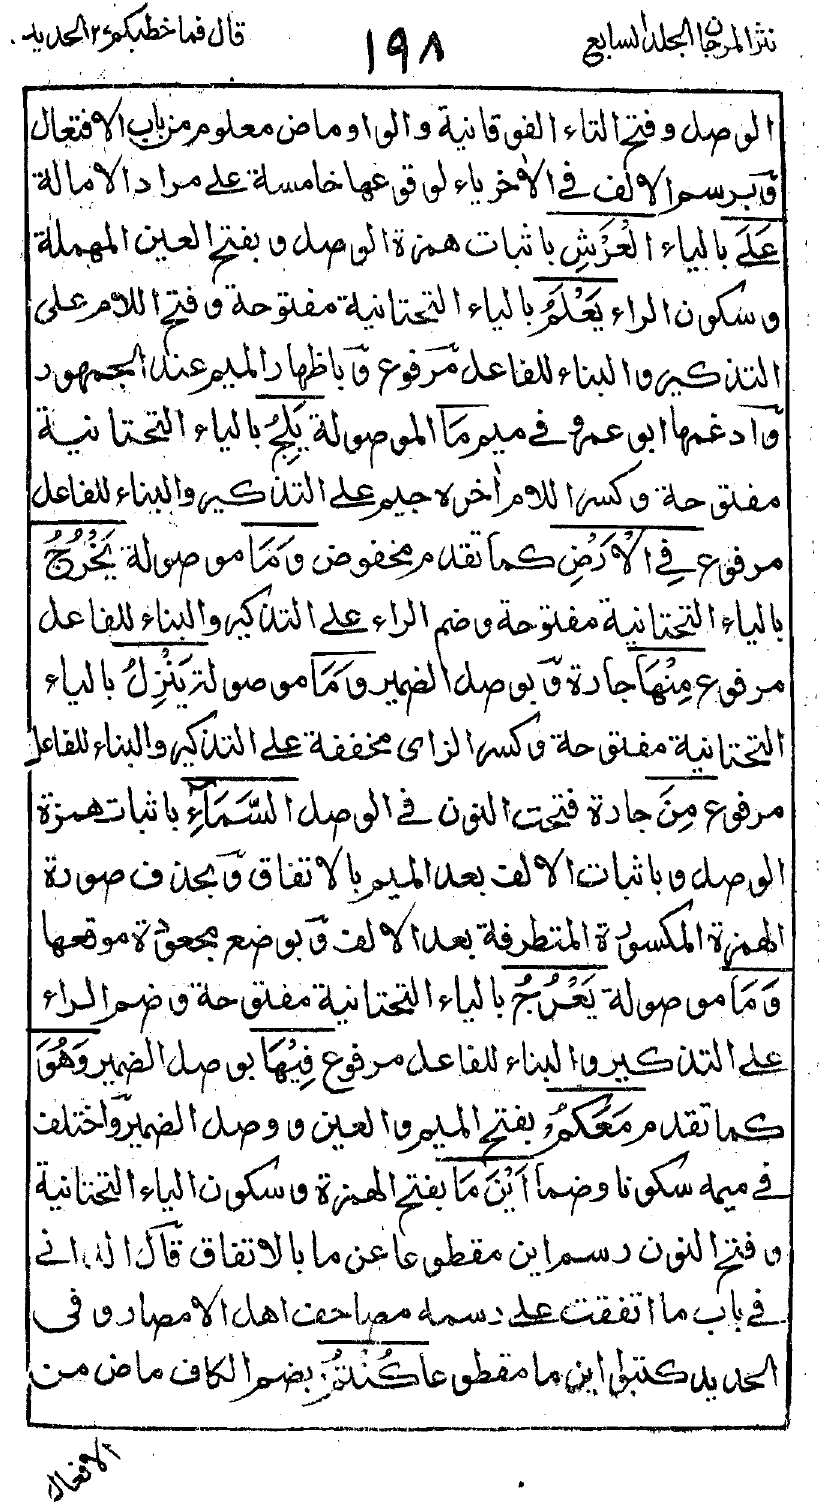 نثر المرجان الجلد السابع
١٩٨
قال فما خطبكم ٢٧ الحديد
الوصل وفتح التاء الفوقانية والواو ماض معلوم من باب الافتعال
وّبرسم الالف في الأخر ياء لوقوعها خامسة على مراد الامالة
عَلَى بالياء الْعَرْشِ باثبات همزة الوصل وبفتح العين المهملة
وسكون الراء يَعْلَمُ بالياء التحتانية مفتوحة وفتح اللام على
التذكير والبناء للفاعل مرفوع وّباظهار الميم عند الجمهور
وّادغمها ابو عمرو في ميم مَا الموصولة يَلِجُ بالياء التحتانية
مفتوحة وكسر اللام أخره جيم على التذكير والبناء للفاعل
مرفوع فِي الْاَرْضِ كما تقدم مخفوض وَمَا موصولة يَخْرُجُ
بالياء التحتانية مفتوحة وضم الراء على التذكير والبناء للفاعل
مرفوع مِنْهَا جارة وّبوصل الضمير وَمَا موصولة يَنْزِلُ بالياء
التحتانية مفتوحة وكسر الزاى مخففة على التذكير والبناء للفاعل
مرفوع مِنَ جارة فتحت النون في الوصل السَّمَآءِ باثبات همزة
الوصل وباثبات الالف بعد الميم بالاتفاق وّبحذف صورة
الهمزة المكسورة المتطرفة بعد الالف وّبوضع مجعودة موقعها
وَمَا موصولة يَعْرُجُ بالياء التحتانية مفتوحة وضم الراء
على التذكير والبناء للفاعل مرفوع فِيْهَا بوصل الضمير وَهُوَ
كما تقدم مَعَكُمْ بفتح الميم والعين ووصل الضمير وّاختلف
في ميمه سكونا وضما اَيْنَ مَا بفتح الهمزة وسكون الياء التحتانية
وفتح النون رسم اين مقطوعا عن ما بالاتفاق قال الدانى
في باب ما اتفقت على رسمه مصاحف اهل الامصار وفى
الحديد كتبوا اين ما مقطوعا كُنْتُمْ بضم الكاف ماض من
الافعال